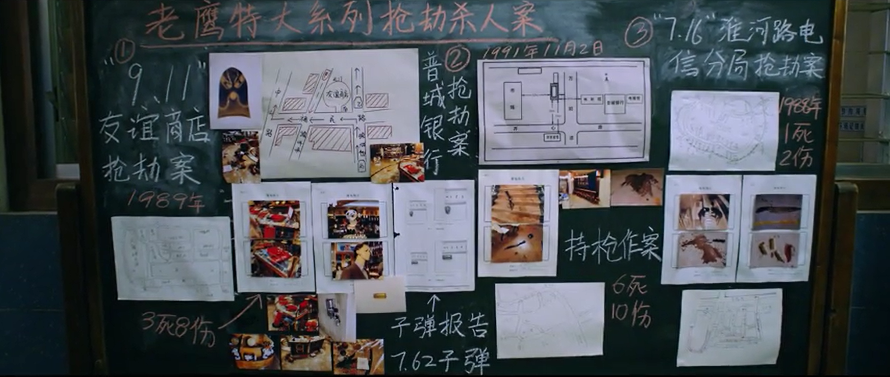 老鹰特大系列抢劫杀人案
①
"9.11"
友谊商店
抢劫案
1989年
3死8伤
②
1991年11月2日
普城银行
抢劫案
子弹报告
7.62子弹
持枪作案
6死
10伤
③
"7.16"淮河路电
信分局抢劫案
1988年
1死
2伤